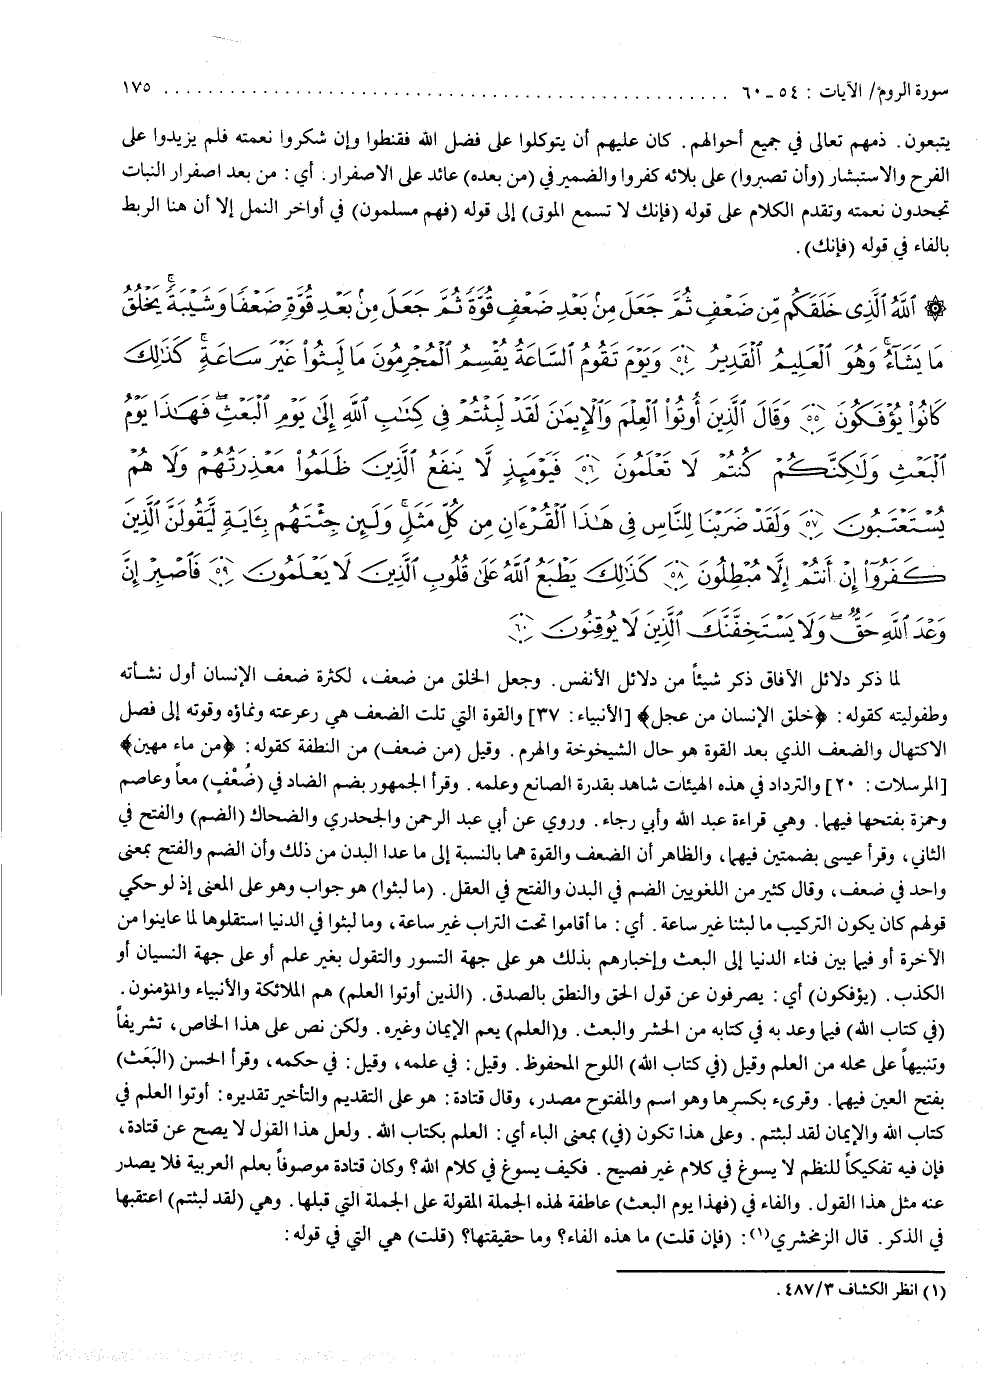 سورة الروم/ الآيات : ٥٤ ـ ٦٠ ........................................................ ١٧٥
يتبعون. ذمهم تعالى في جميع أحوالهم. كان عليهم أن يتوكلوا على فضل الله فقنطوا وإن شكروا نعمته فلم يزيدوا على
الفرح والاستبشار (وأن تصبروا) على بلائه كفروا والضمير في (من بعده) عائد على الاصفرار. أي: من بعد اصفرار النبات
تجحدون نعمته وتقدم الكلام على قوله (فإنك لا تسمع الموتى) إلى قوله (فهم مسلمون) في أواخر النمل إلا أن هنا الربط
بالفاء في قوله (فإنك).
۞ ٱللَّهُ ٱلَّذِى خَلَقَكُم مِّن ضَعْفٍ ثُمَّ جَعَلَ مِنۢ بَعْدِ ضَعْفٍ قُوَّةً ثُمَّ جَعَلَ مِنۢ بَعْدِ قُوَّةٍ ضَعْفًا وَشَيْبَةً ۚ يَخْلُقُ
مَا يَشَآءُ ۚ وَهُوَ ٱلْعَلِيمُ ٱلْقَدِيرُ ﴿٥٤﴾ وَيَوْمَ تَقُومُ ٱلسَّاعَةُ يُقْسِمُ ٱلْمُجْرِمُونَ مَا لَبِثُوا۟ غَيْرَ سَاعَةٍ ۚ كَذَٰلِكَ
كَانُوا۟ يُؤْفَكُونَ ﴿٥٥﴾ وَقَالَ ٱلَّذِينَ أُوتُوا۟ ٱلْعِلْمَ وَٱلْإِيمَٰنَ لَقَدْ لَبِثْتُمْ فِى كِتَٰبِ ٱللَّهِ إِلَىٰ يَوْمِ ٱلْبَعْثِ ۖ فَهَٰذَا يَوْمُ
ٱلْبَعْثِ وَلَٰكِنَّكُمْ كُنتُمْ لَا تَعْلَمُونَ ﴿٥٦﴾ فَيَوْمَئِذٍ لَّا يَنفَعُ ٱلَّذِينَ ظَلَمُوا۟ مَعْذِرَتُهُمْ وَلَا هُمْ
يُسْتَعْتَبُونَ ﴿٥٧﴾ وَلَقَدْ ضَرَبْنَا لِلنَّاسِ فِى هَٰذَا ٱلْقُرْءَانِ مِن كُلِّ مَثَلٍ ۚ وَلَئِن جِئْتَهُم بِـَٔايَةٍ لَّيَقُولَنَّ ٱلَّذِينَ
كَفَرُوٓا۟ إِنْ أَنتُمْ إِلَّا مُبْطِلُونَ ﴿٥٨﴾ كَذَٰلِكَ يَطْبَعُ ٱللَّهُ عَلَىٰ قُلُوبِ ٱلَّذِينَ لَا يَعْلَمُونَ ﴿٥٩﴾ فَٱصْبِرْ إِنَّ
وَعْدَ ٱللَّهِ حَقٌّ ۖ وَلَا يَسْتَخِفَّنَّكَ ٱلَّذِينَ لَا يُوقِنُونَ ﴿٦٠﴾
لما ذكر دلائل الآفاق ذكر شيئاً من دلائل الأنفس. وجعل الخلق من ضعف، لكثرة ضعف الإنسان أول نشأته
وطفوليته كقوله: ﴿خلق الإنسان من عجل﴾ [الأنبياء: ٣٧] والقوة التي تلت الضعف هي رعرعته ونماؤه وقوته إلى فصل
الاكتهال والضعف الذي بعد القوة هو حال الشيخوخة والهرم. وقيل (من ضعف) من النطفة كقوله: ﴿من ماء مهين﴾
[المرسلات: ٢٠] والترداد في هذه الهيئات شاهد بقدرة الصانع وعلمه. وقرأ الجمهور بضم الضاد في (ضُعْفٍ) معاً وعاصم
وحمزة بفتحها فيهما. وهي قراءة عبد الله وأبي رجاء. وروي عن أبي عبد الرحمن والجحدري والضحاك (الضم) والفتح في
الثاني، وقرأ عيسى بضمتين فيهما، والظاهر أن الضعف والقوة هما بالنسبة إلى ما عدا البدن من ذلك وأن الضم والفتح بمعنى
واحد في ضعف، وقال كثير من اللغويين الضم في البدن والفتح في العقل. (ما لبثوا) هو جواب وهو على المعنى إذ لو حكي
قولهم كان يكون التركيب ما لبثنا غير ساعة. أي: ما أقاموا تحت التراب غير ساعة، وما لبثوا في الدنيا استقلوها لما عاينوا من
الآخرة أو فيما بين فناء الدنيا إلى البعث وإخبارهم بذلك هو على جهة التسور والتقول بغير علم أو على جهة النسيان أو
الكذب. (يؤفكون) أي: يصرفون عن قول الحق والنطق بالصدق. (الذين أوتوا العلم) هم الملائكة والأنبياء والمؤمنون.
(في كتاب الله) فيما وعد به في كتابه من الحشر والبعث. و(العلم) يعم الإيمان وغيره. ولكن نص على هذا الخاص، تشريفاً
وتنبيهاً على محله من العلم وقيل (في كتاب الله) اللوح المحفوظ. وقيل: في علمه، وقيل: في حكمه، وقرأ الحسن (البَعَث)
بفتح العين فيهما. وقرىء بكسرها وهو اسم والمفتوح مصدر، وقال قتادة: هو على التقديم والتأخير تقديره: أوتوا العلم في
كتاب الله والإيمان لقد لبثتم. وعلى هذا تكون (في) بمعنى الباء أي: العلم بكتاب الله. ولعل هذا القول لا يصح عن قتادة،
فإن فيه تفكيكاً للنظم لا يسوغ في كلام غير فصيح. فكيف يسوغ في كلام الله؟ وكان قتادة موصوفاً بعلم العربية فلا يصدر
عنه مثل هذا القول. والفاء في (فهذا يوم البعث) عاطفة لهذه الجملة المقولة على الجملة التي قبلها. وهي (لقد لبثتم) اعتقبها
في الذكر. قال الزمخشري(١): (فإن قلت) ما هذه الفاء؟ وما حقيقتها؟ (قلت) هي التي في قوله:
(١) انظر الكشاف ٤٨٧/٣.